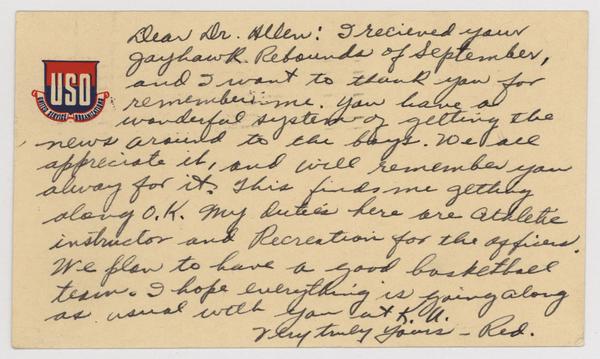 Dear Dr. Allen: I recieved your
Jayhawk Rebounds of September,
and I want to thank you for
remembering me. You have a
wonderful system of getting the
news around to the boys. We all
appreciate it, and will remember you
alway for it. This finds me getting
along O.K. My duties here are Athletic
instructor and Recreation for the officers.
We plan to have a good basketball
team. I hope everything is going along
as usual with you at K.U.
Very truly yours - Red.
USO
UNITED SERVICE ORGANIZATIONS